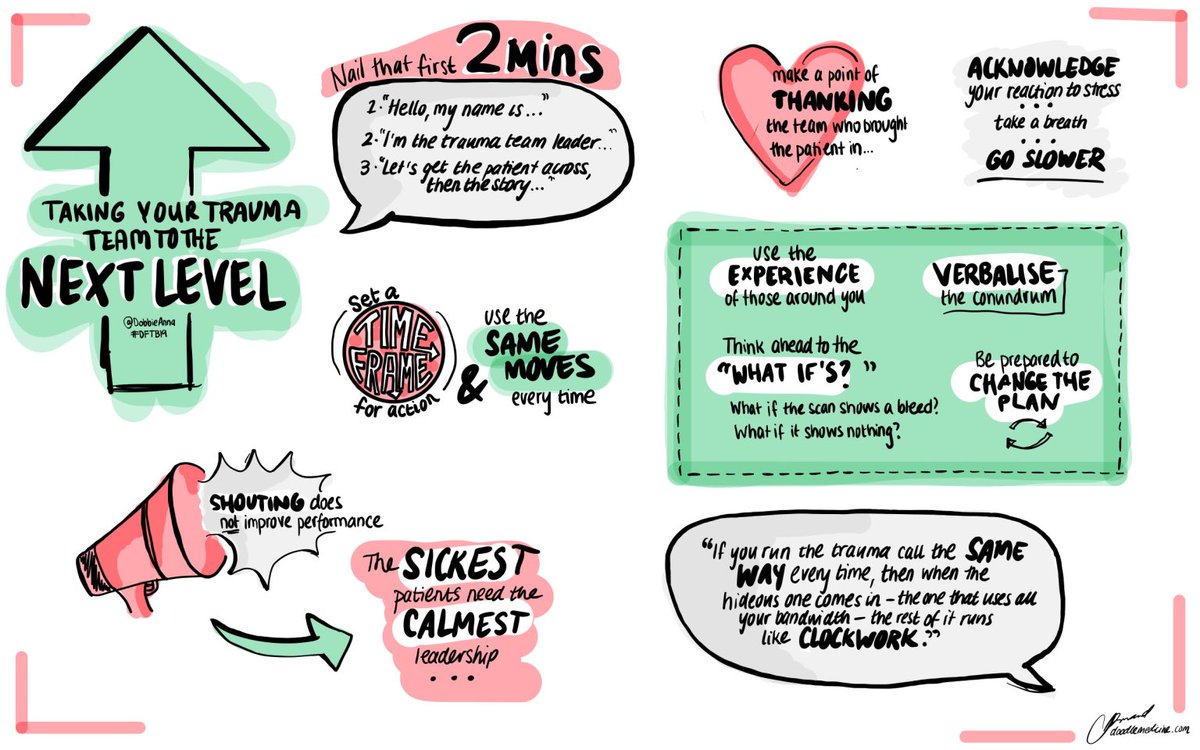 TAKING YOUR TRAUMA
TEAM TO THE
NEXT LEVEL
@DobbieAnna
#DFTB19
Nail that first 2 MINS
1. "Hello, my name is..."
2. "I'm the trauma team leader...
3. "Let's get the patient across,
then the story..."
set a
TIME
FRAME
for action
&
use the
SAME
MOVES
every time
SHOUTING does
not improve performance
The SICKEST
patients need the
CALMEST
leadership
...
make a point of
THANKING
the team who brought
the patient in...
ACKNOWLEDGE
your reaction to stress
...
take a breath
...
GO SLOWER
use the
EXPERIENCE
of those around you
VERBALISE
the conundrum
Think ahead to the
"WHAT IF'S?"
What if the scan shows a bleed?
What if it shows nothing?
Be prepared to
CHANGE THE
PLAN
"If you run the trauma call the SAME
WAY every time, then when the
hideous one comes in – the one that uses all
your bandwidth – the rest of it runs
like CLOCKWORK."
doodlemedicine.com